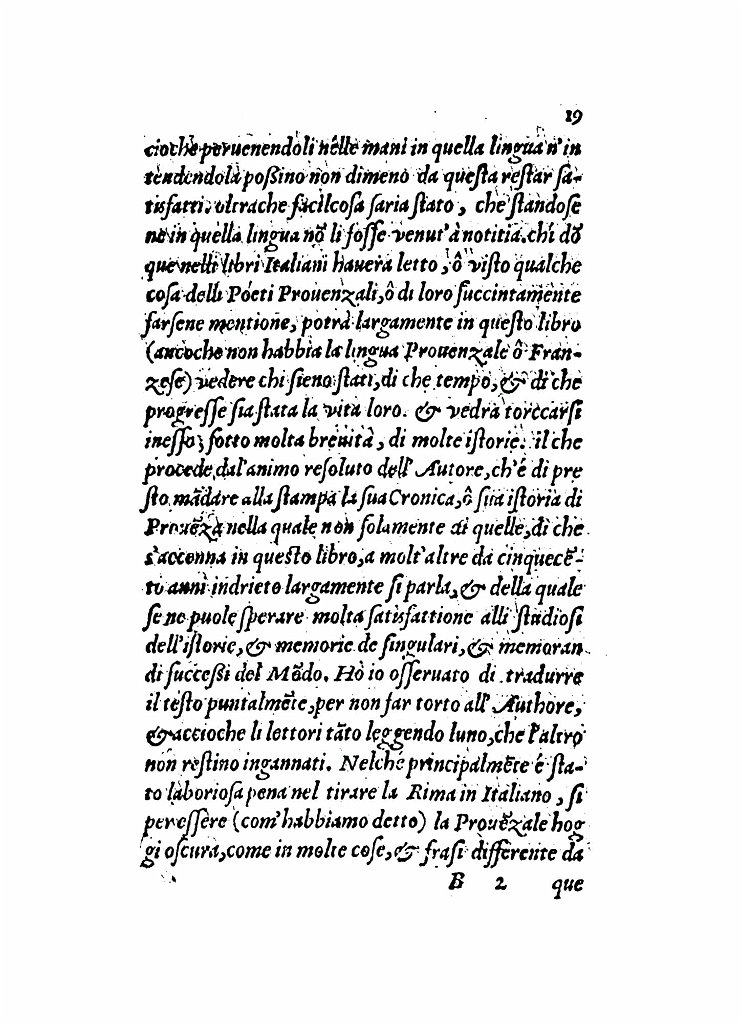 19
cioche peruenendoli nelle mani in quella lingua n' in
tendendola poßino non dimeno da questa restar sa-
tisfatti. oltrache facilcosa saria stato, che standose
ne in quella lingua nõ li fosse venut' à notitia. chi dõ
que nelli libri Italiani hauera letto, ô visto qualche
cosa delli Poeti Prouenzali, ô di loro succintamente
farsene mentione, potrà largamente in questo libro
(ancoche non habbia la lingua Prouenzale ô Fran-
zese) vedere chi sieno stati, di che tempo, & di che
progresse sia stata la vita loro. & vedrà torccarsi
inesso, sotto molta breuità, di molte istorie. il che
procede dal'animo resoluto dell' Autore, ch'é di pre
sto mãdare alla stampa la sua Cronica, ô sua istoria di
Prouẽza nella quale non solamente di quelle, di che
s'accenna in questo libro, a molt'altre da cinquecẽ-
to anni indrieto largamente si parla, & della quale
se ne puole sperare molta satisfattione alli studiosi
dell'istorie, & memorie de singulari, & memoran
di succeßi del Mõdo. Hò io osseruato di tradurre
il testo puntalmẽte, per non far torto all' Authore,
& accioche li lettori tãto leggendo luno, che l'altro
non restino ingannati. Nelché principalmẽte é sta-
to laboriosa pena nel tirare la Rima in Italiano, si
per essere (com' habbiamo detto) la Prouẽzale hog
gi oscura, come in molte cose, & frasi differente da
B 2 que